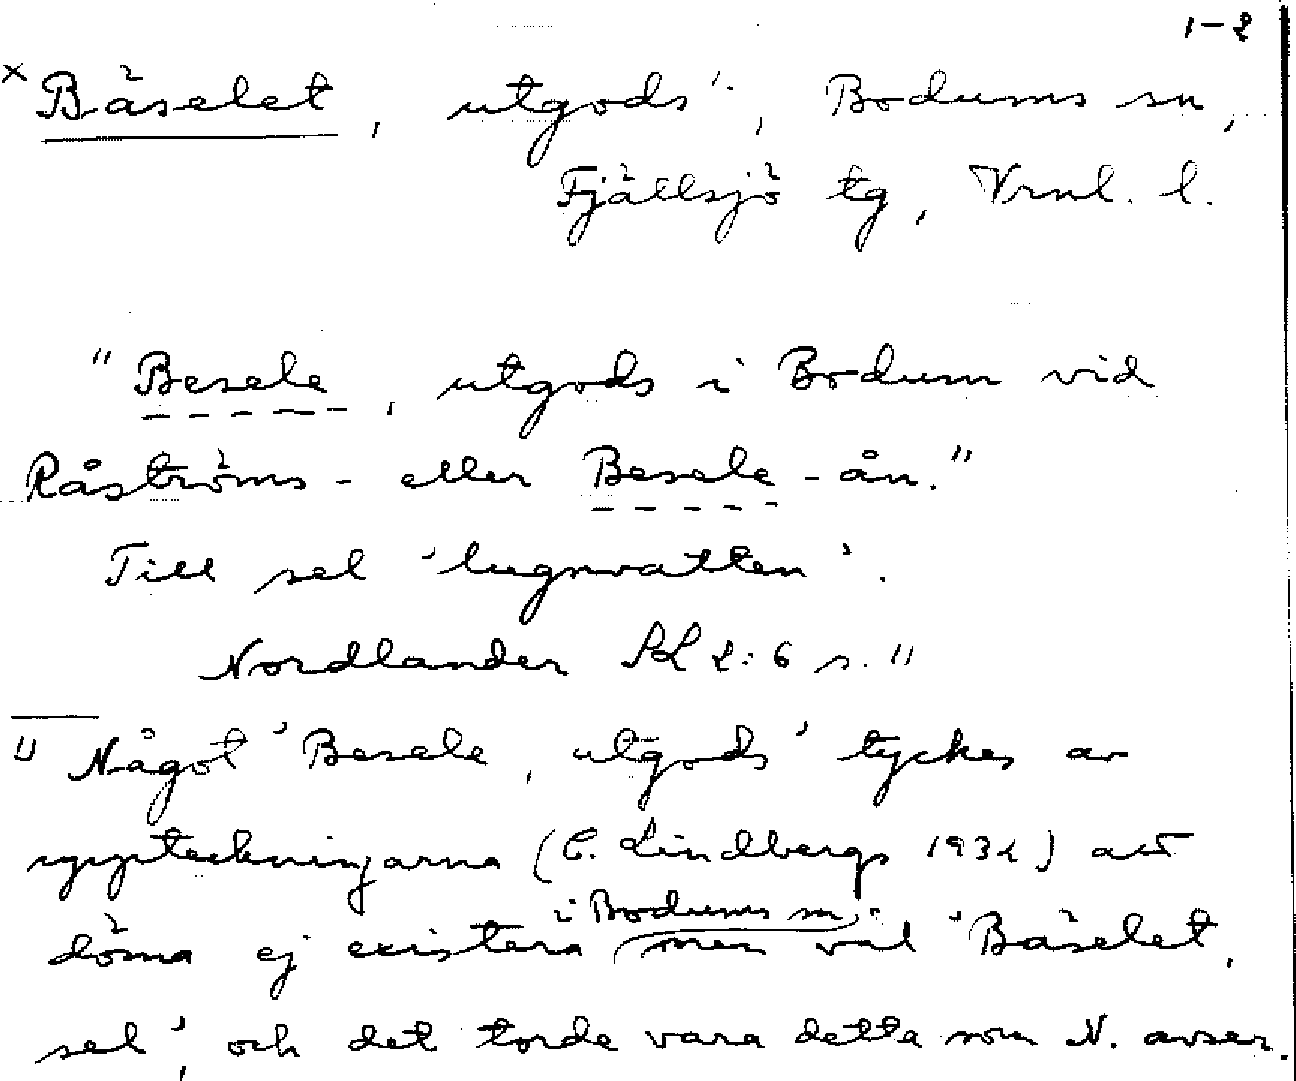 1-2
× Bäselet, utgods', Bodums sn,
Fjällsjö tg, Vrnl. l.
"Besele, utgods i Bodum vid
Råströms- eller Besele-ån."
Till sel 'lugnvatten'.
Nordlander NK 2:6 s. 11
1) Något 'Besele, utgods' tyckes av
uppteckningarna (C. Lindbergs 1932) att
i Bodums sn
döma ej existera men väl 'Bäselet,
sel', och det torde vara detta som N. avser.